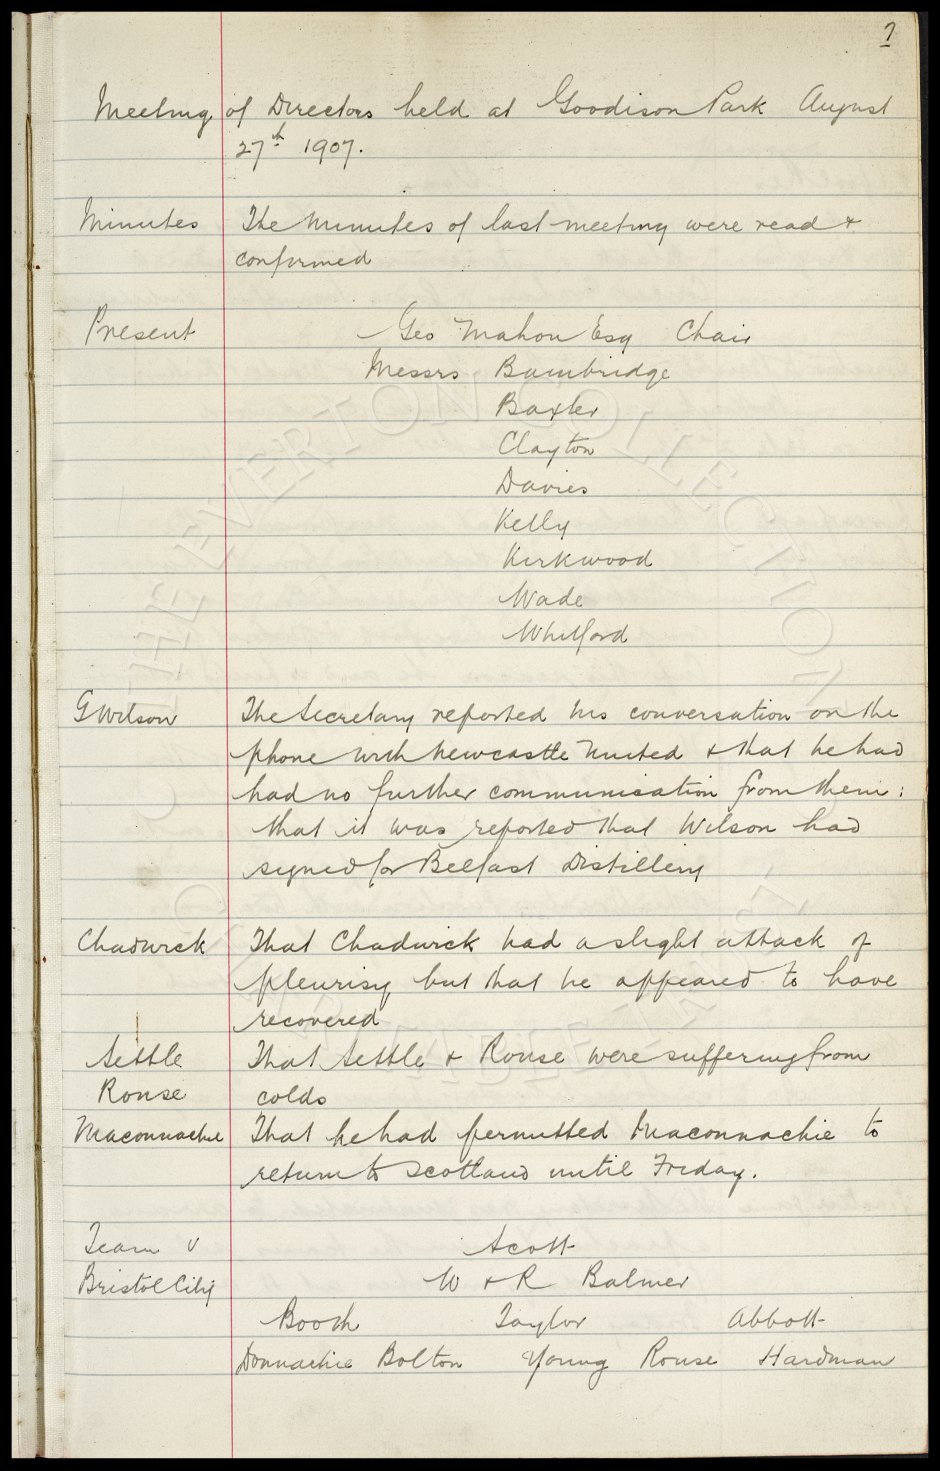 7
Meeting of Directors held at Goodison Park August
27th 1907.
Minutes The Minutes of last meeting were read &
confirmed
Present Geo Mahon Esq Chair
Messrs Bainbridge
Baxter
Clayton
Davies
Kelly
Kirkwood
Wade
Whitford
G Wilson The Secretary reported his conversation on the
phone with Newcastle United & that he had
had no further communication from them:
that it was reported that Wilson had
signed for Belfast Distillery
Chadwick That Chadwick had a slight attack of
pleurisy but that he appeared to have
recovered
Settle That Settle & Rouse were suffering from
Rouse colds
Maconnachie That he had permitted Maconnachie to
return to Scotland until Friday.
Team v Scott
Bristol City W & R Balmer
Booth Taylor Abbott
Donnachie Bolton Young Rouse Hardman
THE EVERTON COLLECTION